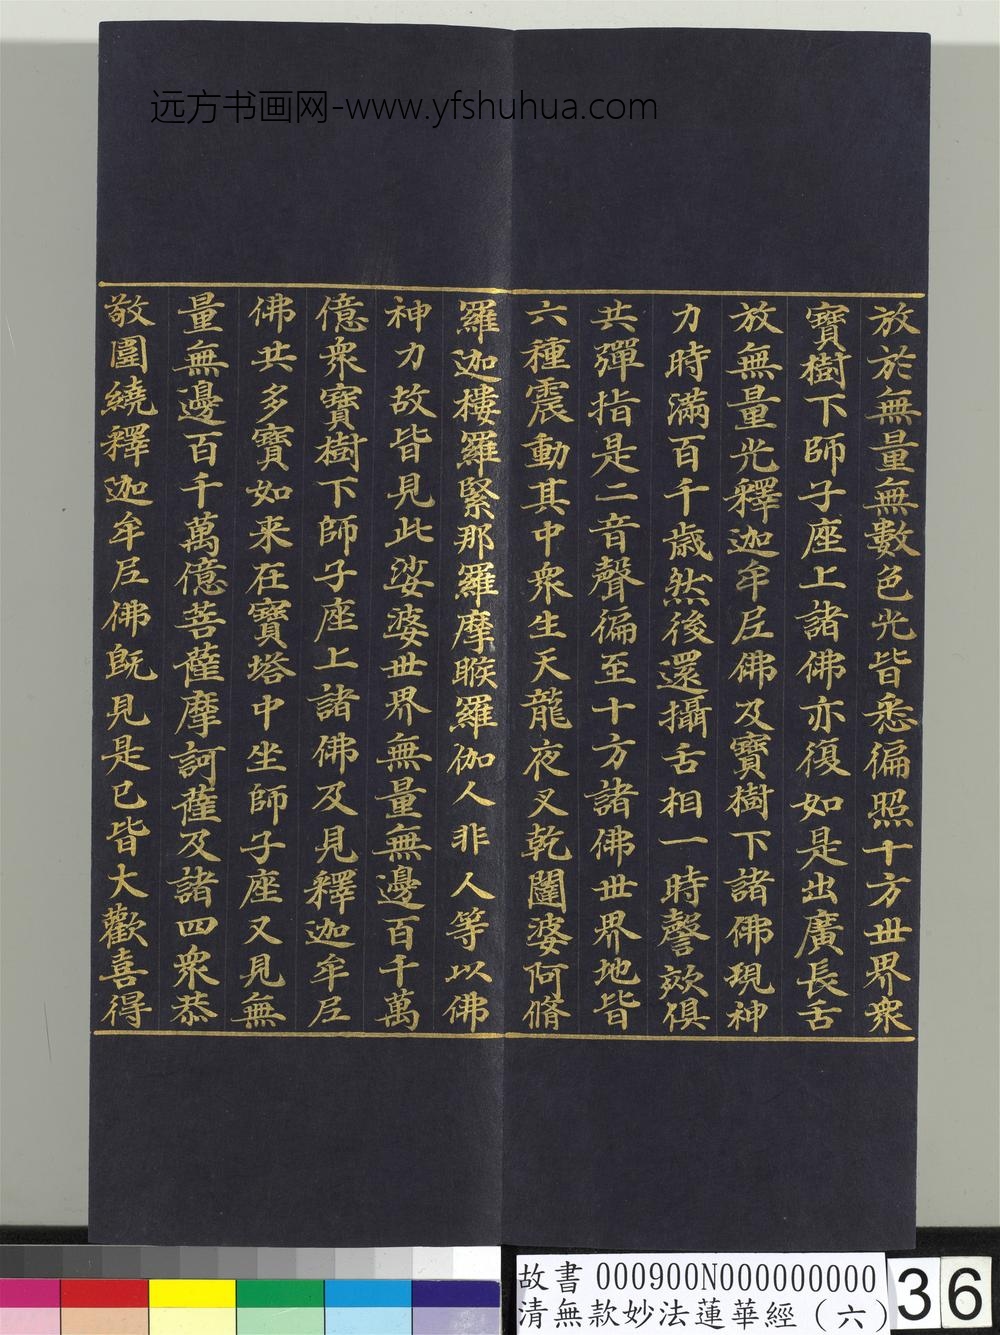 远方书画网-www.yfshuhua.com
放於無量無數色光皆悉徧照十方世界衆
寶樹下師子座上諸佛亦復如是出廣長舌
放無量光釋迦牟尼佛及寶樹下諸佛現神
力時滿百千歲然後還攝舌相一時謦欬俱
共彈指是二音聲徧至十方諸佛世界地皆
六種震動其中衆生天龍夜叉乾闥婆阿脩
羅迦樓羅緊那羅摩睺羅伽人非人等以佛
神力故皆見此娑婆世界無量無邊百千萬
億衆寶樹下師子座上諸佛及見釋迦牟尼
佛共多寶如来在寶塔中坐師子座又見無
量無邊百千萬億菩薩摩訶薩及諸四衆恭
敬圍繞釋迦牟尼佛既見是已皆大歡喜得
故書 000900N000000000
清無款妙法蓮華經（六）
36